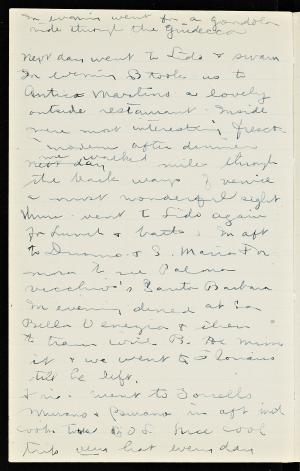 In evening went for a gondola
ride through the Guidecca
Next day went to Lido & swam
In evening B took us to
Antica Martino a lovely
outside restaurant. Inside
were most interesting fresco
modern after dinner
we walked miles through
the back ways of Venice
a most wonderful sight
Thurs. went to Lido again
for lunch & bath. In aft
to Duomo & S. Maria For
mosa to see Palma
vecchio's Santa Barbara
In evening dined at
Bella Venezia & then
to train with B. We miss
it & we went to Florians
till he left.
Fri. went to Torcello
Murano & Burano in aft
Nice cool
trip very hot every day